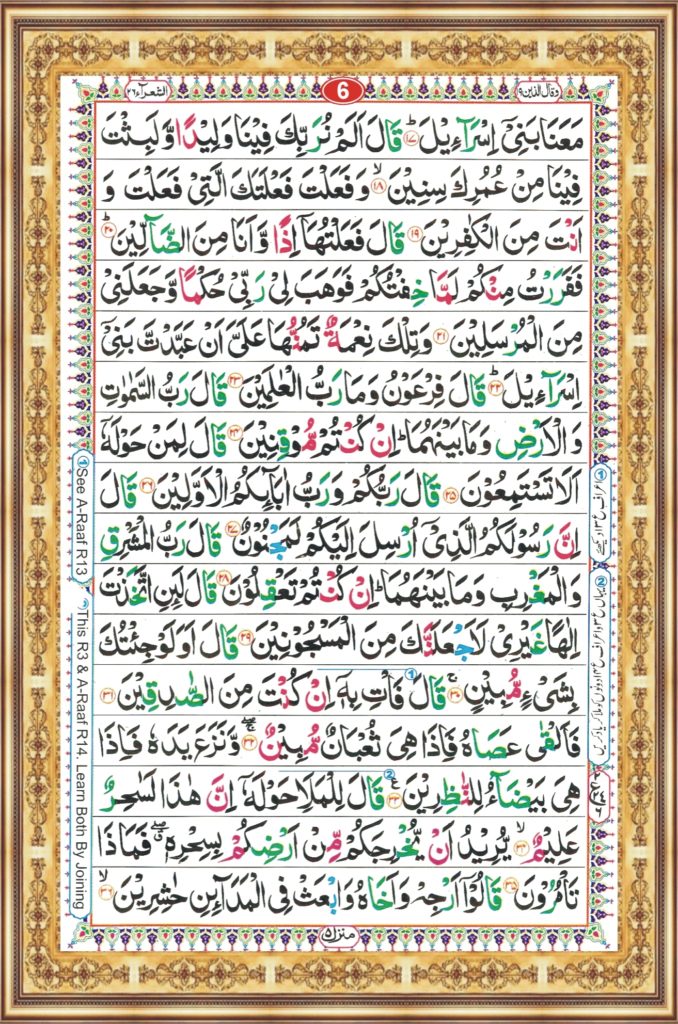 وقال الذین ۱۹
6
الشعرآء ۲۶
مَعَنَا بَنِیْۤ اِسْرَآءِیْلَ ؕ ۱۷ قَالَ اَلَمْ نُرَبِّكَ فِیْنَا وَلِیْدًا وَّ لَبِثْتَ
فِیْنَا مِنْ عُمُرِكَ سِنِیْنَ ۙ ۱۸ وَ فَعَلْتَ فَعْلَتَكَ الَّتِیْ فَعَلْتَ وَ
اَنْتَ مِنَ الْكٰفِرِیْنَ ۱۹ قَالَ فَعَلْتُهَاۤ اِذًا وَّ اَنَا مِنَ الضَّآلِّیْنَ ؕ ۲۰
فَفَرَرْتُ مِنْكُمْ لَمَّا خِفْتُكُمْ فَوَهَبَ لِیْ رَبِّیْ حُكْمًا وَّ جَعَلَنِیْ
مِنَ الْمُرْسَلِیْنَ ۲۱ وَ تِلْكَ نِعْمَةٌ تَمُنُّهَا عَلَیَّ اَنْ عَبَّدْتَّ بَنِیْۤ
اِسْرَآءِیْلَ ؕ ۲۲ قَالَ فِرْعَوْنُ وَ مَا رَبُّ الْعٰلَمِیْنَ ۲۳ قَالَ رَبُّ السَّمٰوٰتِ
وَ الْاَرْضِ وَ مَا بَیْنَهُمَا ؕ اِنْ كُنْتُمْ مُّوْقِنِیْنَ ۲۴ قَالَ لِمَنْ حَوْلَهٗۤ
اَلَا تَسْتَمِعُوْنَ ۲۵ قَالَ رَبُّكُمْ وَ رَبُّ اٰبَآىِٕكُمُ الْاَوَّلِیْنَ ۲۶ قَالَ
اِنَّ رَسُوْلَكُمُ الَّذِیْۤ اُرْسِلَ اِلَیْكُمْ لَمَجْنُوْنٌ ۲۷ قَالَ رَبُّ الْمَشْرِقِ
وَ الْمَغْرِبِ وَ مَا بَیْنَهُمَا ؕ اِنْ كُنْتُمْ تَعْقِلُوْنَ ۲۸ قَالَ لَىِٕنِ اتَّخَذْتَ
اِلٰهًا غَیْرِیْ لَاَجْعَلَنَّكَ مِنَ الْمَسْجُوْنِیْنَ ۲۹ قَالَ اَوَ لَوْ جِئْتُكَ
بِشَیْءٍ مُّبِیْنٍ ۚ ۳۰ قَالَ فَاْتِ بِهٖۤ اِنْ كُنْتَ مِنَ الصّٰدِقِیْنَ ۳۱
فَاَلْقٰی عَصَاهُ فَاِذَا هِیَ ثُعْبَانٌ مُّبِیْنٌ ۚۖ ۳۲ وَّ نَزَعَ یَدَهٗ فَاِذَا
هِیَ بَیْضَآءُ لِلنّٰظِرِیْنَ ۠ ۳۳ قَالَ لِلْمَلَاِ حَوْلَهٗۤ اِنَّ هٰذَا لَسٰحِرٌ
عَلِیْمٌ ۙ ۳۴ یُّرِیْدُ اَنْ یُّخْرِجَكُمْ مِّنْ اَرْضِكُمْ بِسِحْرِهٖ ۖۗ فَمَا ذَا
تَاْمُرُوْنَ ۳۵ قَالُوْۤا اَرْجِهْ وَ اَخَاهُ وَ ابْعَثْ فِی الْمَدَآىِٕنِ حٰشِرِیْنَ ۙ ۳۶
منزل ۵
① See A-Raaf R13
② This R3 & A-Raaf R14. Learn Both By Joining